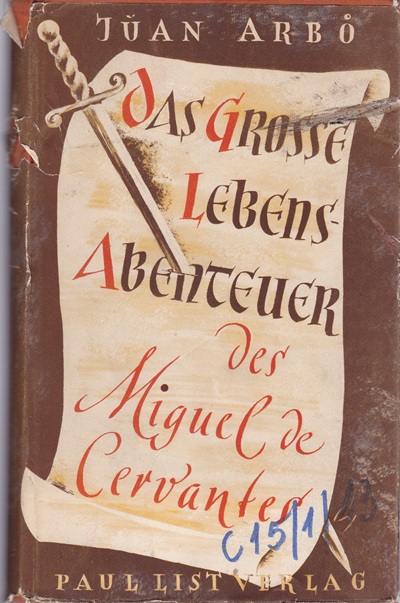 JUAN ARBÓ
DAS GROSSE
LEBENS-
ABENTEUER
des
Miguel de
Cervantes
C 15/1/13
PAUL LIST VERLAG